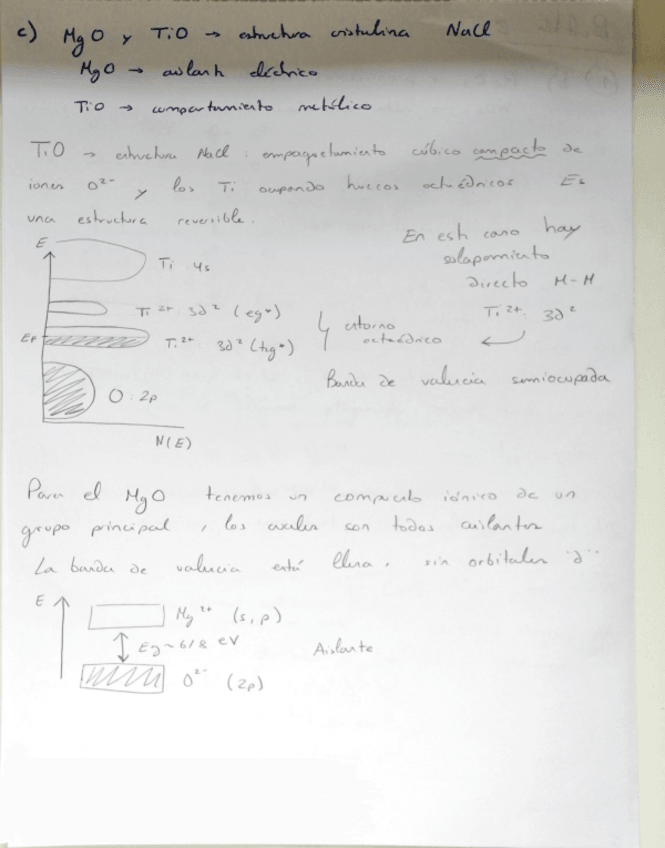 c) MgO y TiO → estructura cristalina NaCl
MgO → aislante eléctrico
TiO → comportamiento metálico
TiO → estructura NaCl : empaquetamiento cúbico compacto de
iones O²⁻ y los Ti ocupando huecos octaédricos Es
una estructura reversible.
En este caso hay
solapamiento
directo M-M
Ti²⁺: 3d²
E
Ti 4s
Ti²⁺ 3d² (eg*)
EF
Ti²⁺ 3d² (t2g*)
entorno
octaédrico
Banda de valencia semiocupada
O : 2p
N(E)
Para el MgO tenemos un compuesto iónico de un
grupo principal, los cuales son todos aislantes
La banda de valencia está llena, sin orbitales "d"
E
Mg²⁺ (s,p)
Eg ~ 6/8 eV
Aislante
O²⁻ (2p)